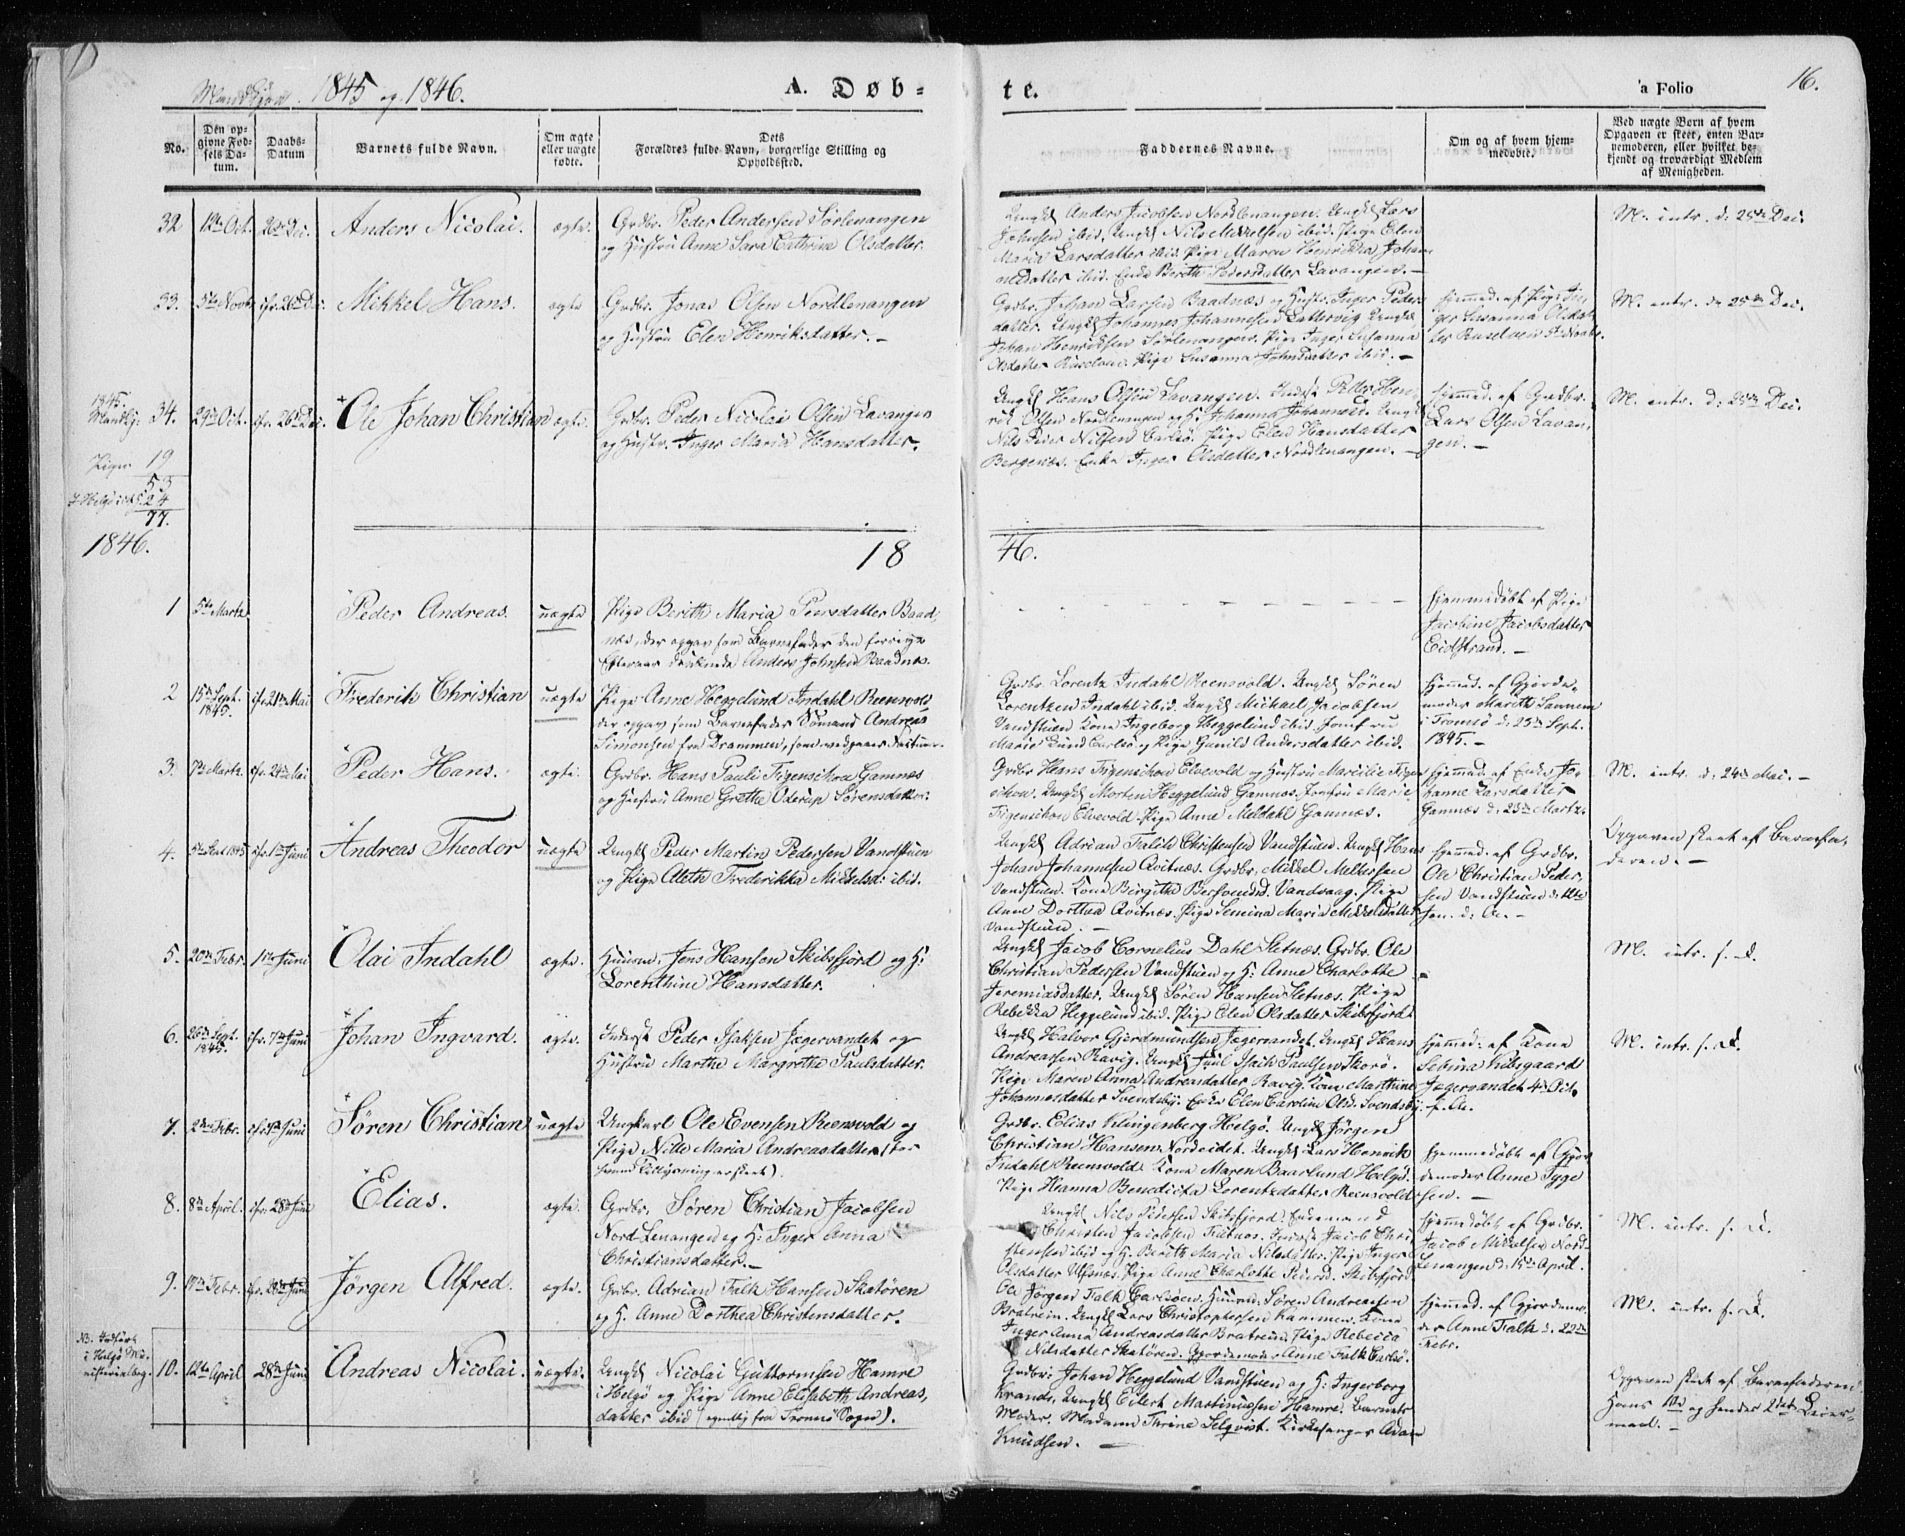 Mandkjøn. 1845 og 1846.
A. Døb-
te.
'a Folio
16.
No.
Den op-
givne Fød-
sels Da-
tum.
Daabs-
Datum
Barnets fulde Navn.
Om ægte
eller uægte
fødte.
Dets
Forældres fulde Navn, borgerlige Stilling og
Opholdssted.
Faddernes Navne.
Om og af hvem hjem-
medøbte.
Ved uægte Børn af hvem
Opgaven er skeet, enten Bar-
nemoderen, eller hvilket be-
kjendt og troværdigt Medlem
af Menigheden.
32
12te Oct.
26de Dec.
Anders Nicolai.
ægte.
Grdbr. Peder Andersen Sørlenangen
og Hustru Anne Sara Cathrina Olsdatter.
Ungkl Anders Jacobsen Nordlenangen. Ungkl Lars
Johnsen ibid. Ungkl Nils Mikkelsen ibid. Pige Elen
Maria Larsdatter ibid. Pige Maren Henrikka Johan-
nesdatter ibid. Enke Berith Pedersdatter Lavangen.
M. intr. d. 25de Dec.
33.
5te Novbr
cfr. 26 Dec.
Mikkel Hans.
ægte
Grdbr. Jonas Olsen Nordlenangen
og Hustru Elen Henriksdatter.
Grdbr. Johan Larsen Baadnæs og Hustr. Inger Peders-
datter. Ungkl Johannes Johannesen Ungkl
Johan Henriksen Sørlenangen. Pige Inger Susanna
Olsdatter Pige Susanna Johnsdatter ibid.
Hjemmed. af Pige In-
ger Susanna Olsdat-
ter 5te Novbr.
M. intr. d. 25de Dec.
1845.
Mandkj:
34.
29de Oct.
cfr. 26 Dec.
Ole Johan Christian
ægte.
Grdbr. Peder Nicolai Olsen Lavangen
og Hustr. Inger Maria Hansdatter.
Ungkl Hans Olsen Lavangen. Inderst Peder Hen-
rik Olsen Nordlenangen og H. Johanna Johannesd. Ungkl
Nils Peder Nilsen Carlsö. Pige Elen Hansdatter
Bergenæs. Enke Inger Olsdatter Nordlenangen.
Hjemmed. af Grdbr.
Lars Olsen Lavan-
gen.
M. intr. d. 25de Dec.
Piger 19
53
24
77.
1846.
18
46.
1
5te Martz
Peder Andreas.
uægte
Pige Berith Maria Peersdatter Baad-
næs, der opgav som Barnefader den forrige
Efteraar druknede Anders Johnsen Baadnæs.
Hjemmedøbt af Pige
Jacobine Jacobsdatter
Eidstrand.
2
15de Sept.
1845.
cfr. 21de Mai
Frederik Christian
uægte
Pige Anne Heggelund Indahl Reensvold
der opgav som Barnefader Sömand Andreas
Simonsen fra Drammen, som
Grdbr. Lorentz Indahl Reensvold. Ungkl Sören
Lorentzen Indahl ibid. Ungkl Michael Jacobsen
Vandstuen Kone Ingeborg Heggelund ibid. Jomfru
Marie Lund Carlsö, Pige Gunild Andersdatter ibid.
Hjemmed. af Gjorde-
moder Marith
i Tromsö d. 25de Sept.
1845.
3.
7de Martz.
cfr. 24de Mai
Peder Hans.
ægte.
Grdbr. Hans Pauli Figenschou Gamnæs
og Hustru Anne Grethe Oderup Sørensdatter.
Grdbr Hans Figenschou Elvevold og Hustru Marcilie Figen-
schou. Ungkl Morten Heggelund Gamnæs. Jomfru Marie
Figenschou Elvevold. Pige Anne Meldahl Gamnæs.
Hjemmed. af Enke Jo-
hanne Larsdatter
Gamnæs d. 23de Martz.
M. intr. d. 24de Mai.
4.
1845
cfr. 1ste Juni
Andreas Theodor
uægte
Ungkl Peder Martin Pedersen Vandstuen
og Pige Aleth Frederikka Michelsd. ibid.
Ungkl Adrian Falck Christensen Vandstuen. Ungkl Hans
Johan Johannesen Qvitnæs. Grdbr. Mikkel Melkersen
Vandstuen. Kone Birgithe Vandvaag. Pige
Anne Dorthea Qvitnæs. Pige Semina Maria Mikkelsdatter
Vandstuen.
Hjemmed. af Grdbr.
Ole Christian Peder-
sen Vandstuen d. 11te
Jan. d. A.
Opgaven skeet af Barnefa-
deren.
5.
20de Febr.
1ste Juni
Olai Indahl
ægte.
Huusm. Jens Hanson Skibsfjord og H:
Lorenthine Hansdatter.
Ungkl Jacob Cornelius Dahl Sletnæs. Grdbr. Ole
Christian Pedersen Vandstuen og H: Anne Charlotte
Jeremiasdatter. Ungkl Sören Hansen Sletnæs. Pige
Rebekka Heggelund ibid. Pige Elen Olsdatter Skibsfjord.
M. intr. s. D.
6.
26de Sept.
1845.
cfr. 7de Juni
Johan Ingvard.
ægte.
Inderst Peder Isaksen Jægervandet og
Hustru Marthe Margrethe Paulsdatter.
Ungkl Halvor Gjerdmundsen Jægervandet. Ungkl Hans
Andreassen Ravig. Ungkl Juul Isach Paulsen Skorö.
Pige Maren Anna Andreasdatter Ravig. Kone Marthine
Johannesdatter Svendsby. Enke Elen Caroline Olsd. Svendsby.
Hjemmed: af Kone
Sebina Kiilsgaard
Jægervandet 4de Oct.
f. A.
M. intr. s. D.
7.
Febr.
Juni
Søren Christian
uægte
Ungkarl Ole Evensen Reensvold og
Pige Nille Maria Andreasdatter (tro-
erskeet).
Grdbr. Elias Klingenberg Helgö. Ungkl Jörgen
Christian Hansen Nordeidet. Ungkl Lars Henrik
Indahl Reensvold. Kone Maren Baarlund Helgö.
Pige Hanna Benedicta Lorentzdatter Reensvold.
Hjemmedøbt af Gjor-
demoder Anne Tyge-
sen.
8.
8de April.
cfr. 28de Juni
Elias.
ægte.
Grdbr. Sören Christian Jacobsen
Nord-Lenangen og H: Inger Anna
Christiansdatter.
Ungkl Nils Pedersen Skibsfjord. Enkemand
Christen Jacobsen Inderst Jacob Chri-
stensen ibid og H. Berith Maria Nilsdatter. Pige Inger
Olsdatter Ulfsnæs. Pige Anne Charlotte Pedersd. Skibsfjord
Hjemmedøbt af Grdbr.
Jacob Mikkelsen Nord-
Lenangen d. 15de April.
M. intr. s. D.
9.
19de Febr.
cfr. 28de Juni
Jørgen Alfred.
ægte.
Grdbr. Adrian Falk Hansen Skatören
og H. Anne Dorthea Christensdatter.
Jörgen Falk Carlsöen. Huusm. Sören Andreassen
Bratrein. Ungkl Lars Christophersen Hammen. Kone
Inger Anna Andreasdatter Bratrein. Pige Rebecca
Nilsdatter Skatören. Gjordemoder Anne Falk Carlsö.
Hjemmed. af Gjordemo-
der Anne Falk d. 22de
Febr.
M. intr. s. D.
NB. Indført
i Helgö Mi-
nisterialbog.
10.
12te April
28de Juni
Andreas Nicolai.
uægte.
Ungkl Nicolai Guttormsen Hamre
i Helgö og Pige Anne Elisabeth Andreas-
datter ibid (egentlig fra Tromsö Sogn).
Grdbr: Johan Heggelund Vandstuen og H: Ingerborg
Krane, Ungkl Eilert Martinussen Hamre. Barnets
Moder. Madame Thrine Selqvist. Kirkesanger Adam
Knudsen.
Opgaven skeet af Barnefaderen
Hans 1ste og hendes 2det Leier-
maal.